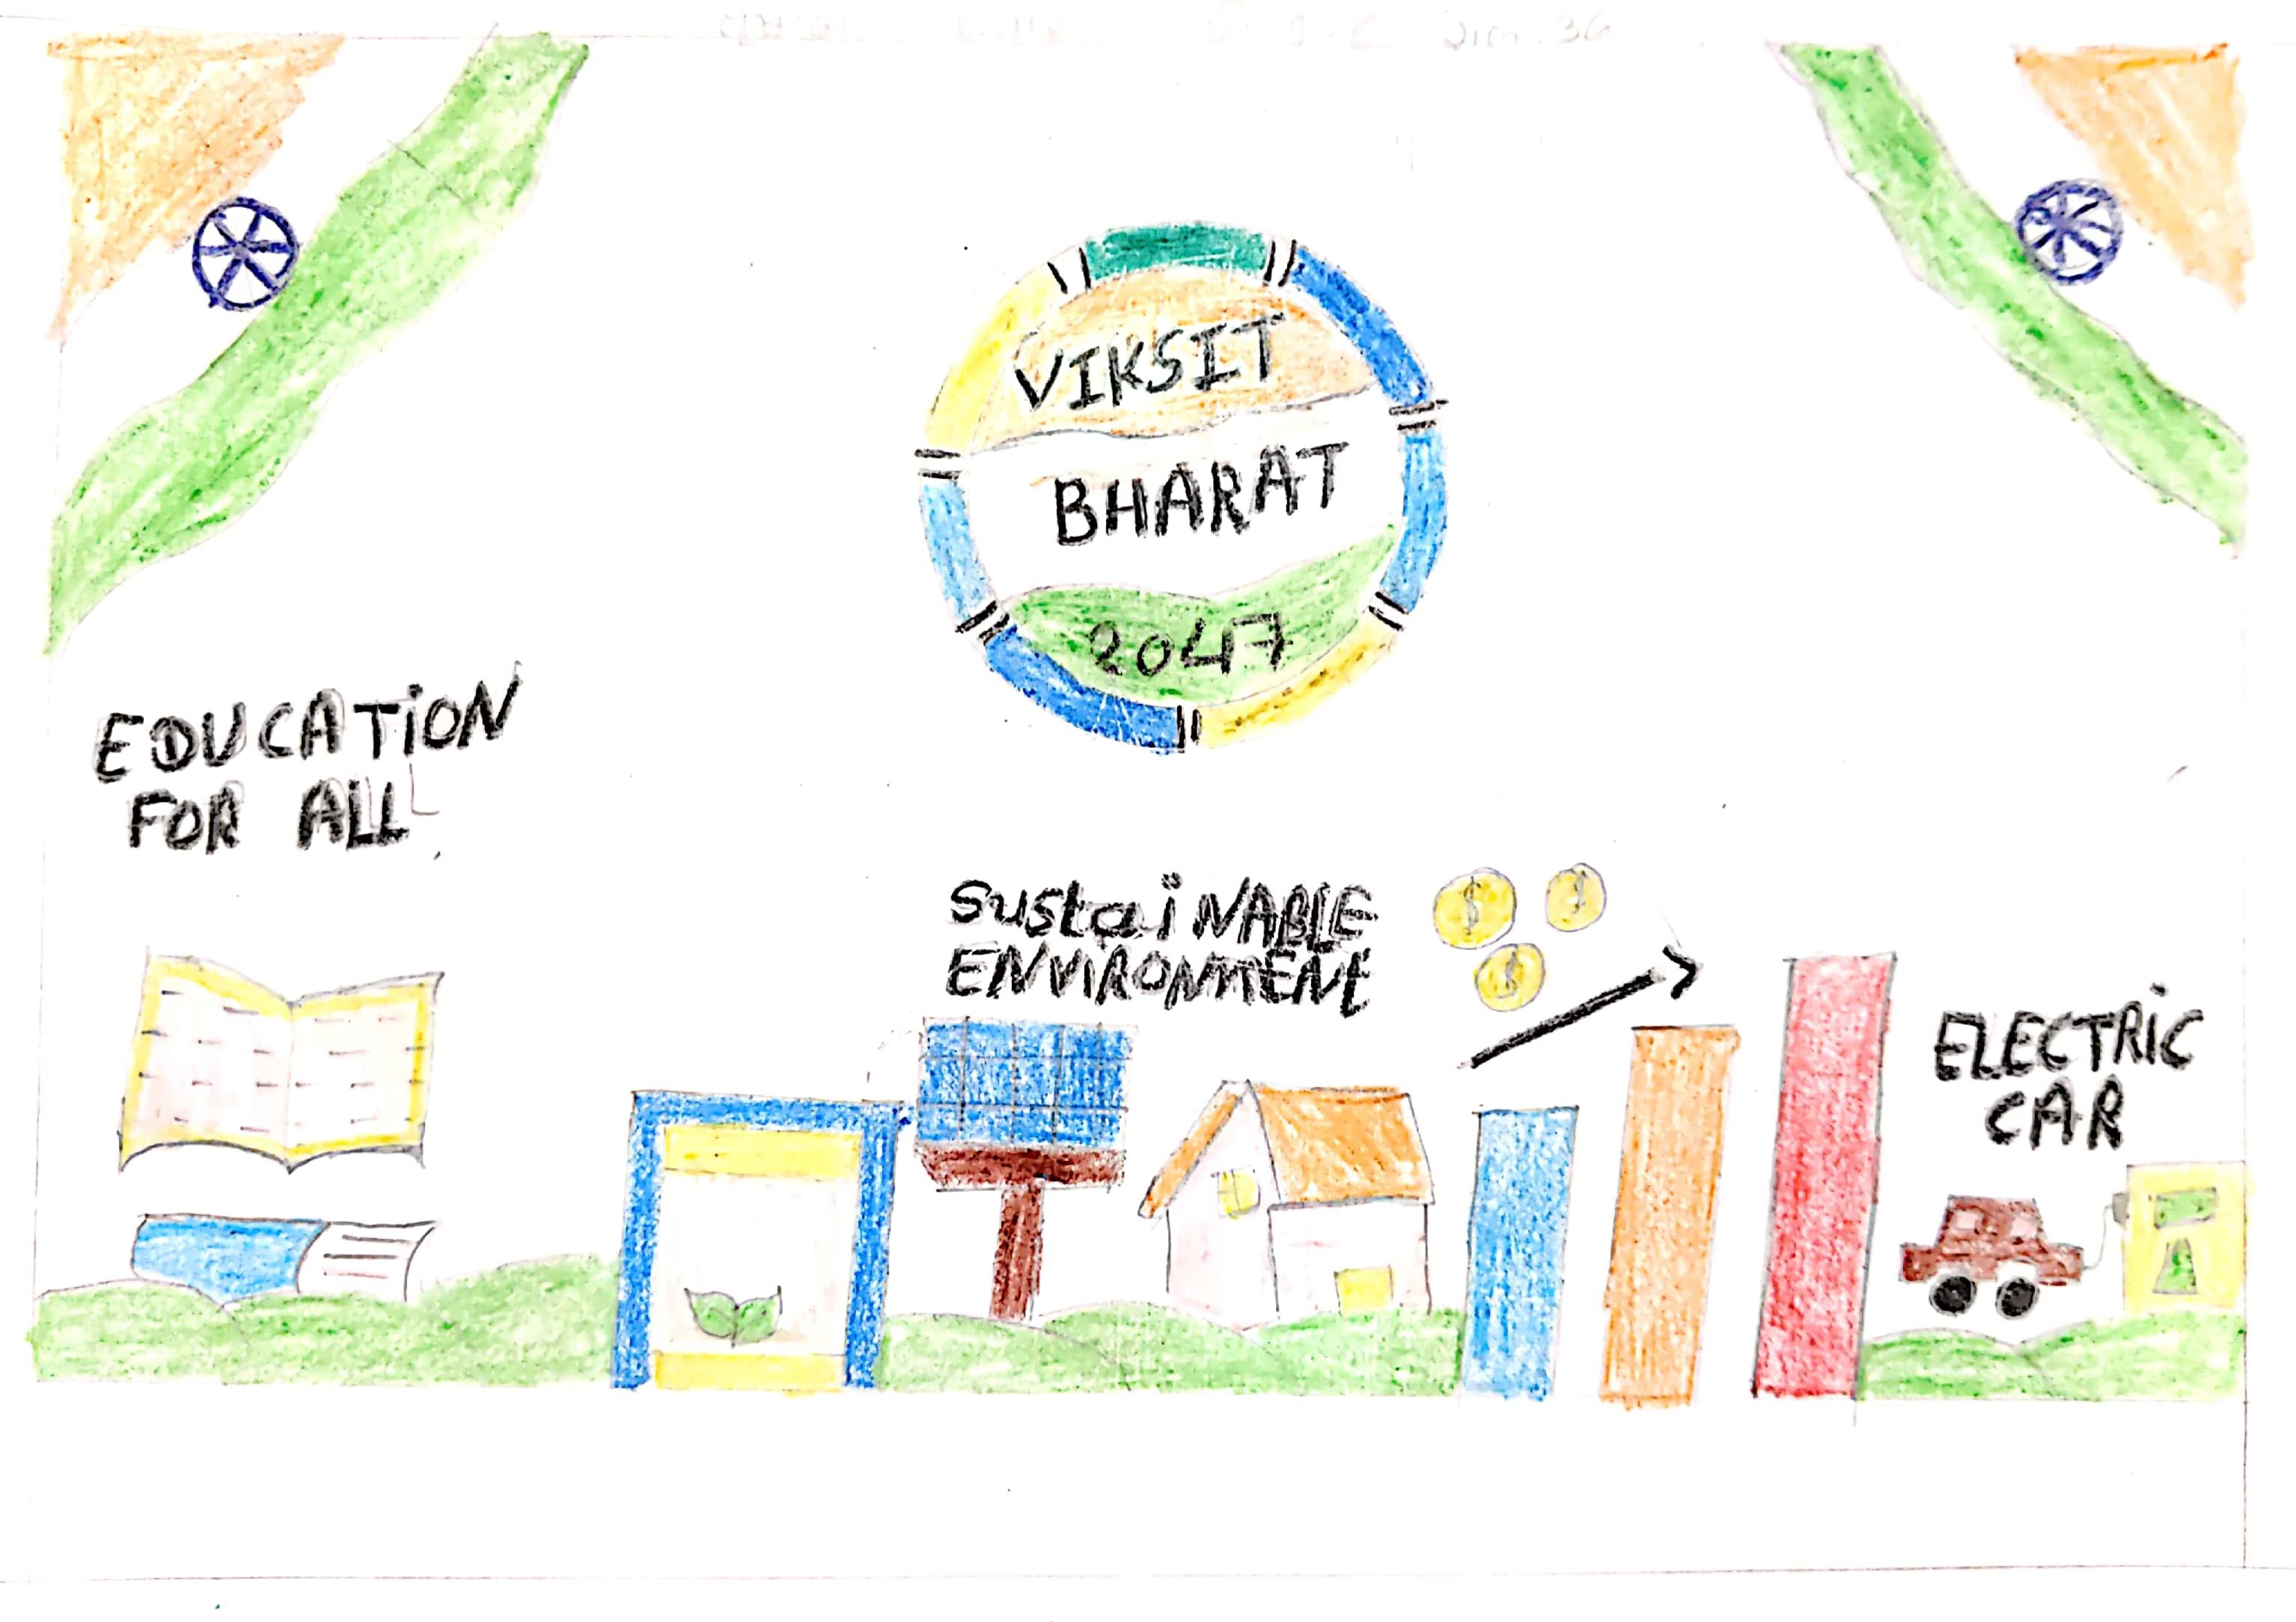 VIKSIT
BHARAT
2047
EDUCATION
FOR ALL
SustaiNABLE
ENVIRONMENT
$ $ $
ELECTRIC
CAR